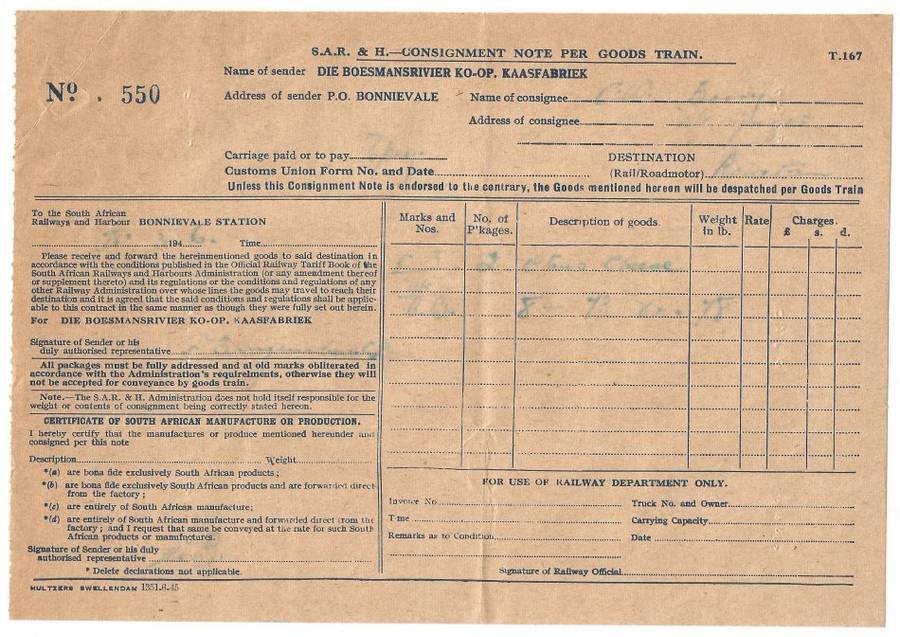 S.A.R. & H.—CONSIGNMENT NOTE PER GOODS TRAIN.
T.167
Nº. 550
Name of sender DIE BOESMANSRIVIER KO-OP. KAASFABRIEK
Address of sender P.O. BONNIEVALE
Name of consignee
Address of consignee
Carriage paid or to pay
DESTINATION
Customs Union Form No. and Date
(Rail/Roadmotor)
Unless this Consignment Note is endorsed to the contrary, the Goods mentioned hereon will be despatched per Goods Train
To the South African
Railways and Harbour BONNIEVALE STATION
194 6. Time
Please receive and forward the hereinmentioned goods to said destination in
accordance with the conditions published in the Official Railway Tariff Book of the
South African Railways and Harbours Administration (or any amendment thereof
or supplement thereto) and its regulations or the conditions and regulations of any
other Railway Administration over whose lines the goods may travel to reach their
destination and it is agreed that the said conditions and regulations shall be applic-
able to this contract in the same manner as though they were fully set out herein.
For DIE BOESMANSRIVIER KO-OP. KAASFABRIEK
Signature of Sender or his
duly authorised representative
All packages must be fully addressed and al old marks obliterated in
accordance with the Administration's requirelments, otherwise they will
not be accepted for conveyance by goods train.
Note.—The S.A.R. & H. Administration does not hold itself responsible for the
weight or contents of consignment being correctly stated hereon.
CERTIFICATE OF SOUTH AFRICAN MANUFACTURE OR PRODUCTION.
I hereby certify that the manufactures or produce mentioned hereunder and
consigned per this note
Description Weight
*(a) are bona fide exclusively South African products;
*(b) are bona fide exclusively South African products and are forwarded direct
from the factory;
*(c) are entirely of South African manufacture;
*(d) are entirely of South African manufacture and forwarded direct from the
factory; and I request that same be conveyed at the rate for such South
African products or manufactures.
Signature of Sender or his duly
authorised representative
* Delete declarations not applicable.
MULTZERS SWELLENDAM 1351-6-45
Marks and Nos. No. of P'kages. Description of goods. Weight in lb. Rate Charges.
£ s. d.
2
8 78
FOR USE OF RAILWAY DEPARTMENT ONLY.
Invoice No. Truck No. and Owner
Time Carrying Capacity
Remarks as to Condition Date
Signature of Railway Official